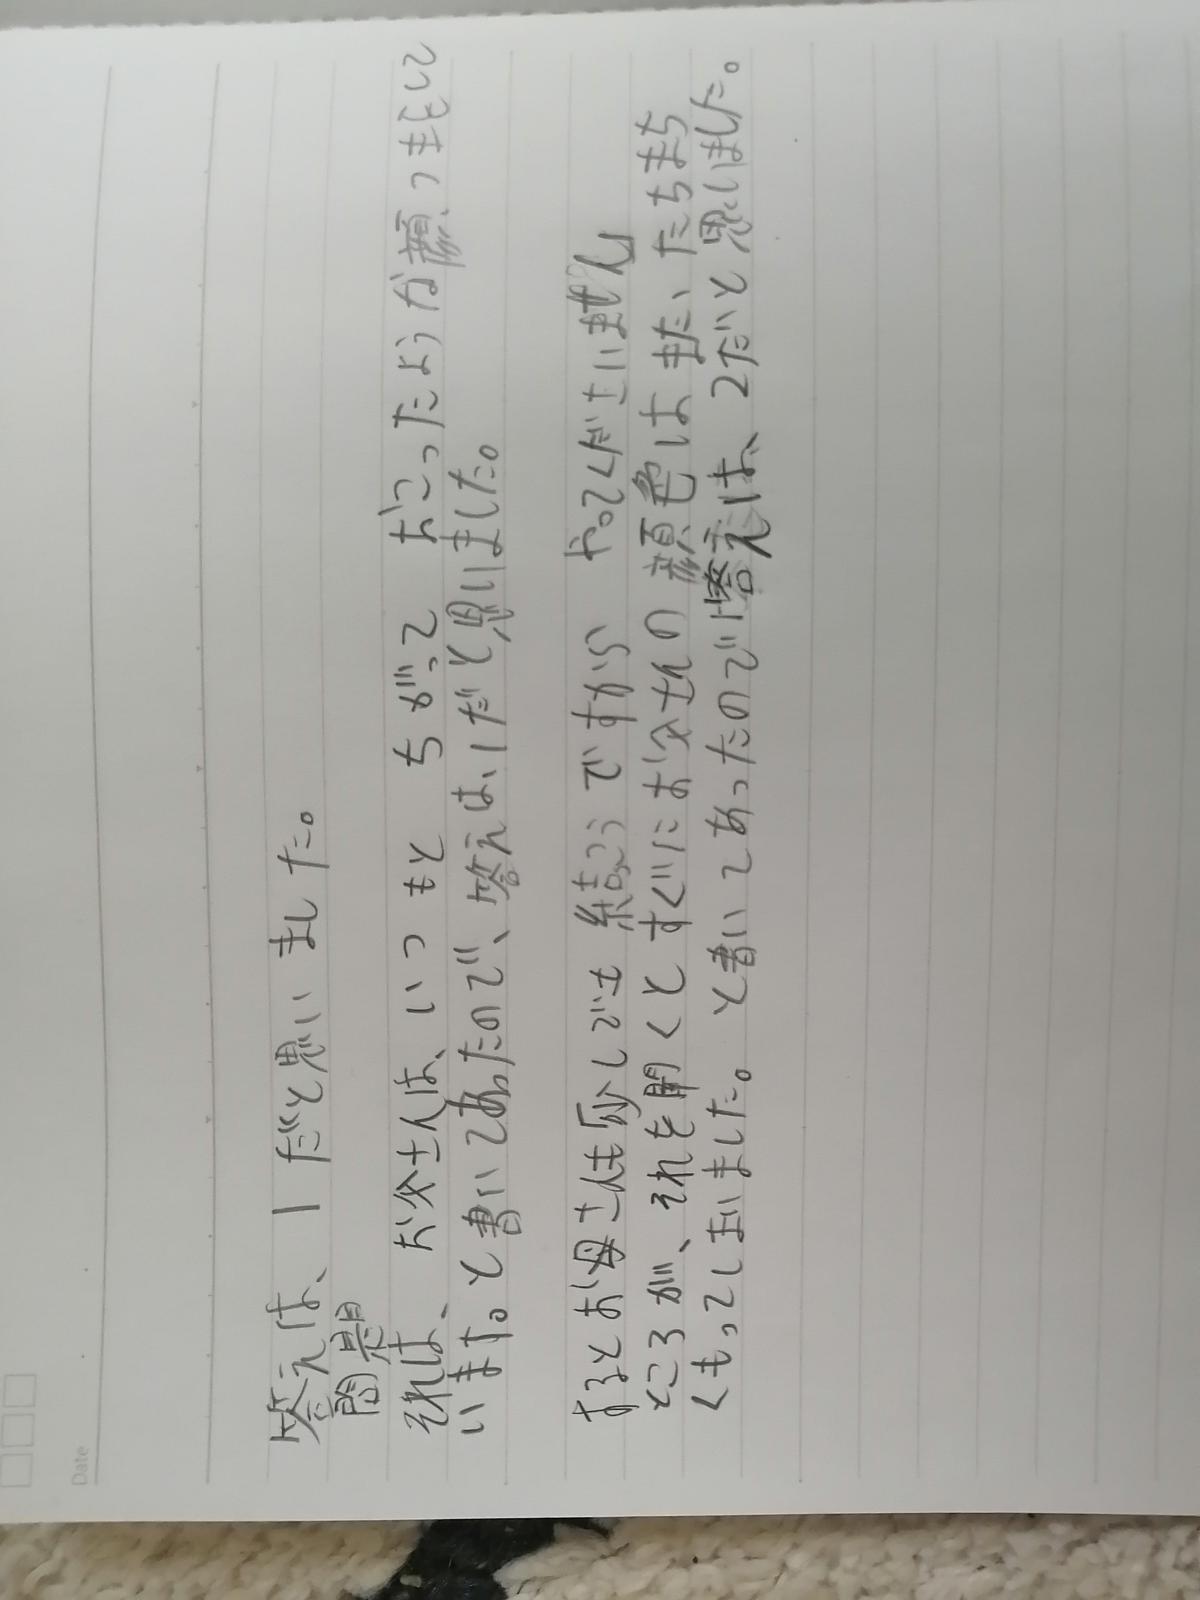 Date
答えは、1だと思いました。
問題
それは、お父さんは、いつもと ちがって おこったようが顔つきをして
います。と書いてあったので、答えは、1だと思いました。
するとお母さんは少しでも 結こう ですから やってくださいません
ところが、それを開くとすぐにお父さんの 顔色は また、たちまち
くもってしまいました。 と書いてあったので 答えは、2だと思いました。